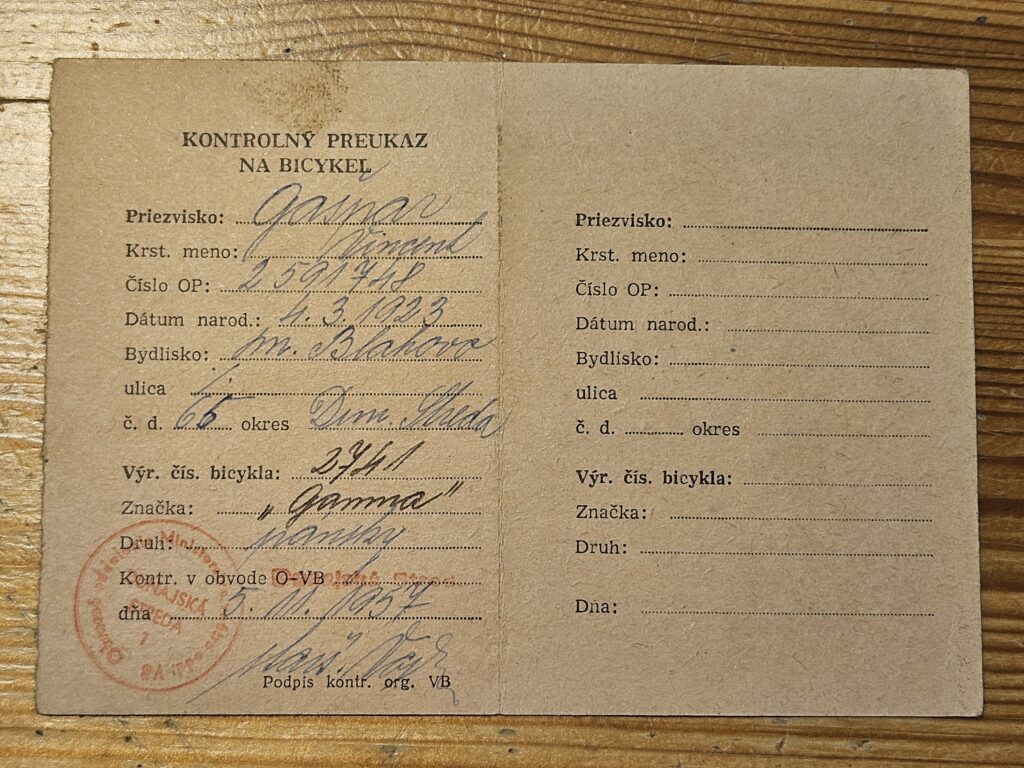 KONTROLNÝ PREUKAZ
NA BICYKEL
Priezvisko: Gašpar
Krst. meno: Vincent
Číslo OP: 2591748
Dátum narod.: 4. 3. 1923
Bydlisko: Blahova
ulica
č. d. 65 okres Dun. Streda
Výr. čís. bicykla: 2741
Značka: „Gamma"
Druh: pánsky
Kontr. v obvode O-VB Dunajská Streda
dňa 5. 11. 1957
DUNAJSKÁ
STREDA
1
Podpis kontr. org. VB
Priezvisko:
Krst. meno:
Číslo OP:
Dátum narod.:
Bydlisko:
ulica
č. d. okres
Výr. čís. bicykla:
Značka:
Druh:
Dňa: